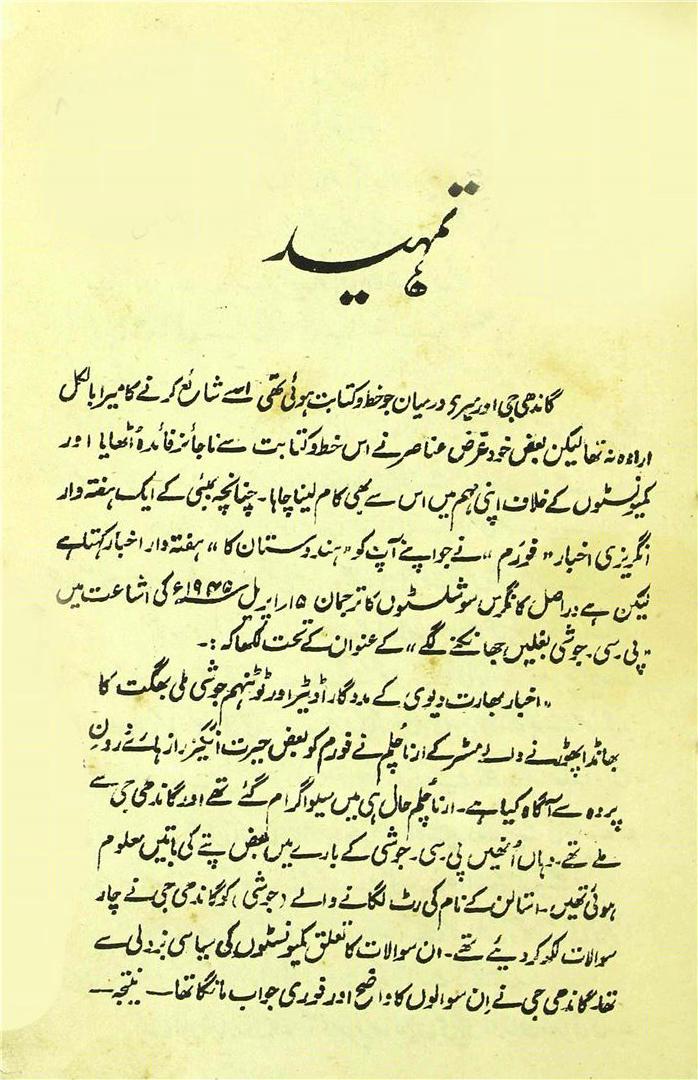 تمہید
گاندھی جی اور میرے درمیان جو خط و کتابت ہوئی تھی اسے شائع کرنے کا میرا بالکل
ارادہ نہ تھا لیکن بعض خود غرض عناصر نے اس خط و کتابت سے ناجائز فائدہ اُٹھایا اور
کمیونسٹوں کے خلاف اپنی مہم میں اس سے بھی کام لینا چاہا۔ چنانچہ بمبئی کے ایک ہفتہ وار
انگریزی اخبار "فورم" نے جو اپنے آپ کو "ہندوستان کا" ہفتہ وار اخبار کہتا ہے
لیکن ہے دراصل کانگرس سوشلسٹوں کا ترجمان ۱۵ اپریل ۱۹۴۵ء کی اشاعت میں
"پی۔سی۔ جوشی بغلیں جھانکنے لگے" کے عنوان کے تحت لکھا کہ :۔
"اخبار بھارت دیوی کے مددگار اڈیٹر اور ٹوٹنہم جوشی ملی بھگت کا
بھانڈا پھوڑنے والے مسٹر کے ارناچلم نے فورم کو بعض حیرت انگیز راز ہائے درونِ
پردہ سے آگاہ کیا ہے۔ ارناچلم حال ہی میں سیوا گرام گئے تھے اور گاندھی جی سے
ملے تھے۔ وہاں اُنھیں پی۔سی۔ جوشی کے بارے میں بعض پتے کی باتیں معلوم
ہوئی تھیں۔ استالن کے نام کی رٹ لگانے والے (جوشی) کو گاندھی جی نے چار
سوالات لکھ کر دیئے تھے۔ ان سوالات کا تعلق کمیونسٹوں کی سیاسی بزدلی سے
تھا۔ گاندھی جی نے اِن سوالوں کا واضح اور فوری جواب مانگا تھا — نتیجہ —